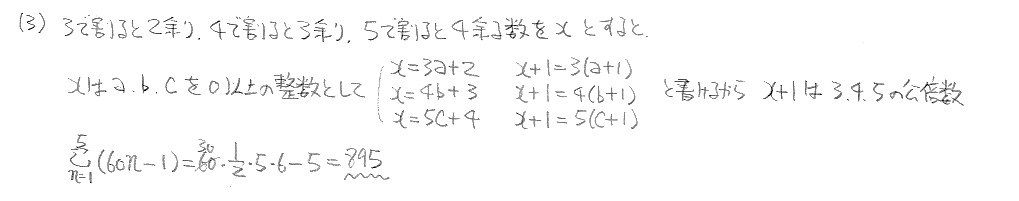 (3) 3で割ると2余り、4で割ると3余り、5で割ると4余る数をxとすると、
xはa.b.cを0以上の整数として { x=3a+2 x+1=3(a+1)
x=4b+3 x+1=4(b+1) と書けるから x+1は3.4.5の公倍数
x=5c+4 x+1=5(c+1)
5Σn=1 (60n-1)=30 60・1/2・5・6-5=895